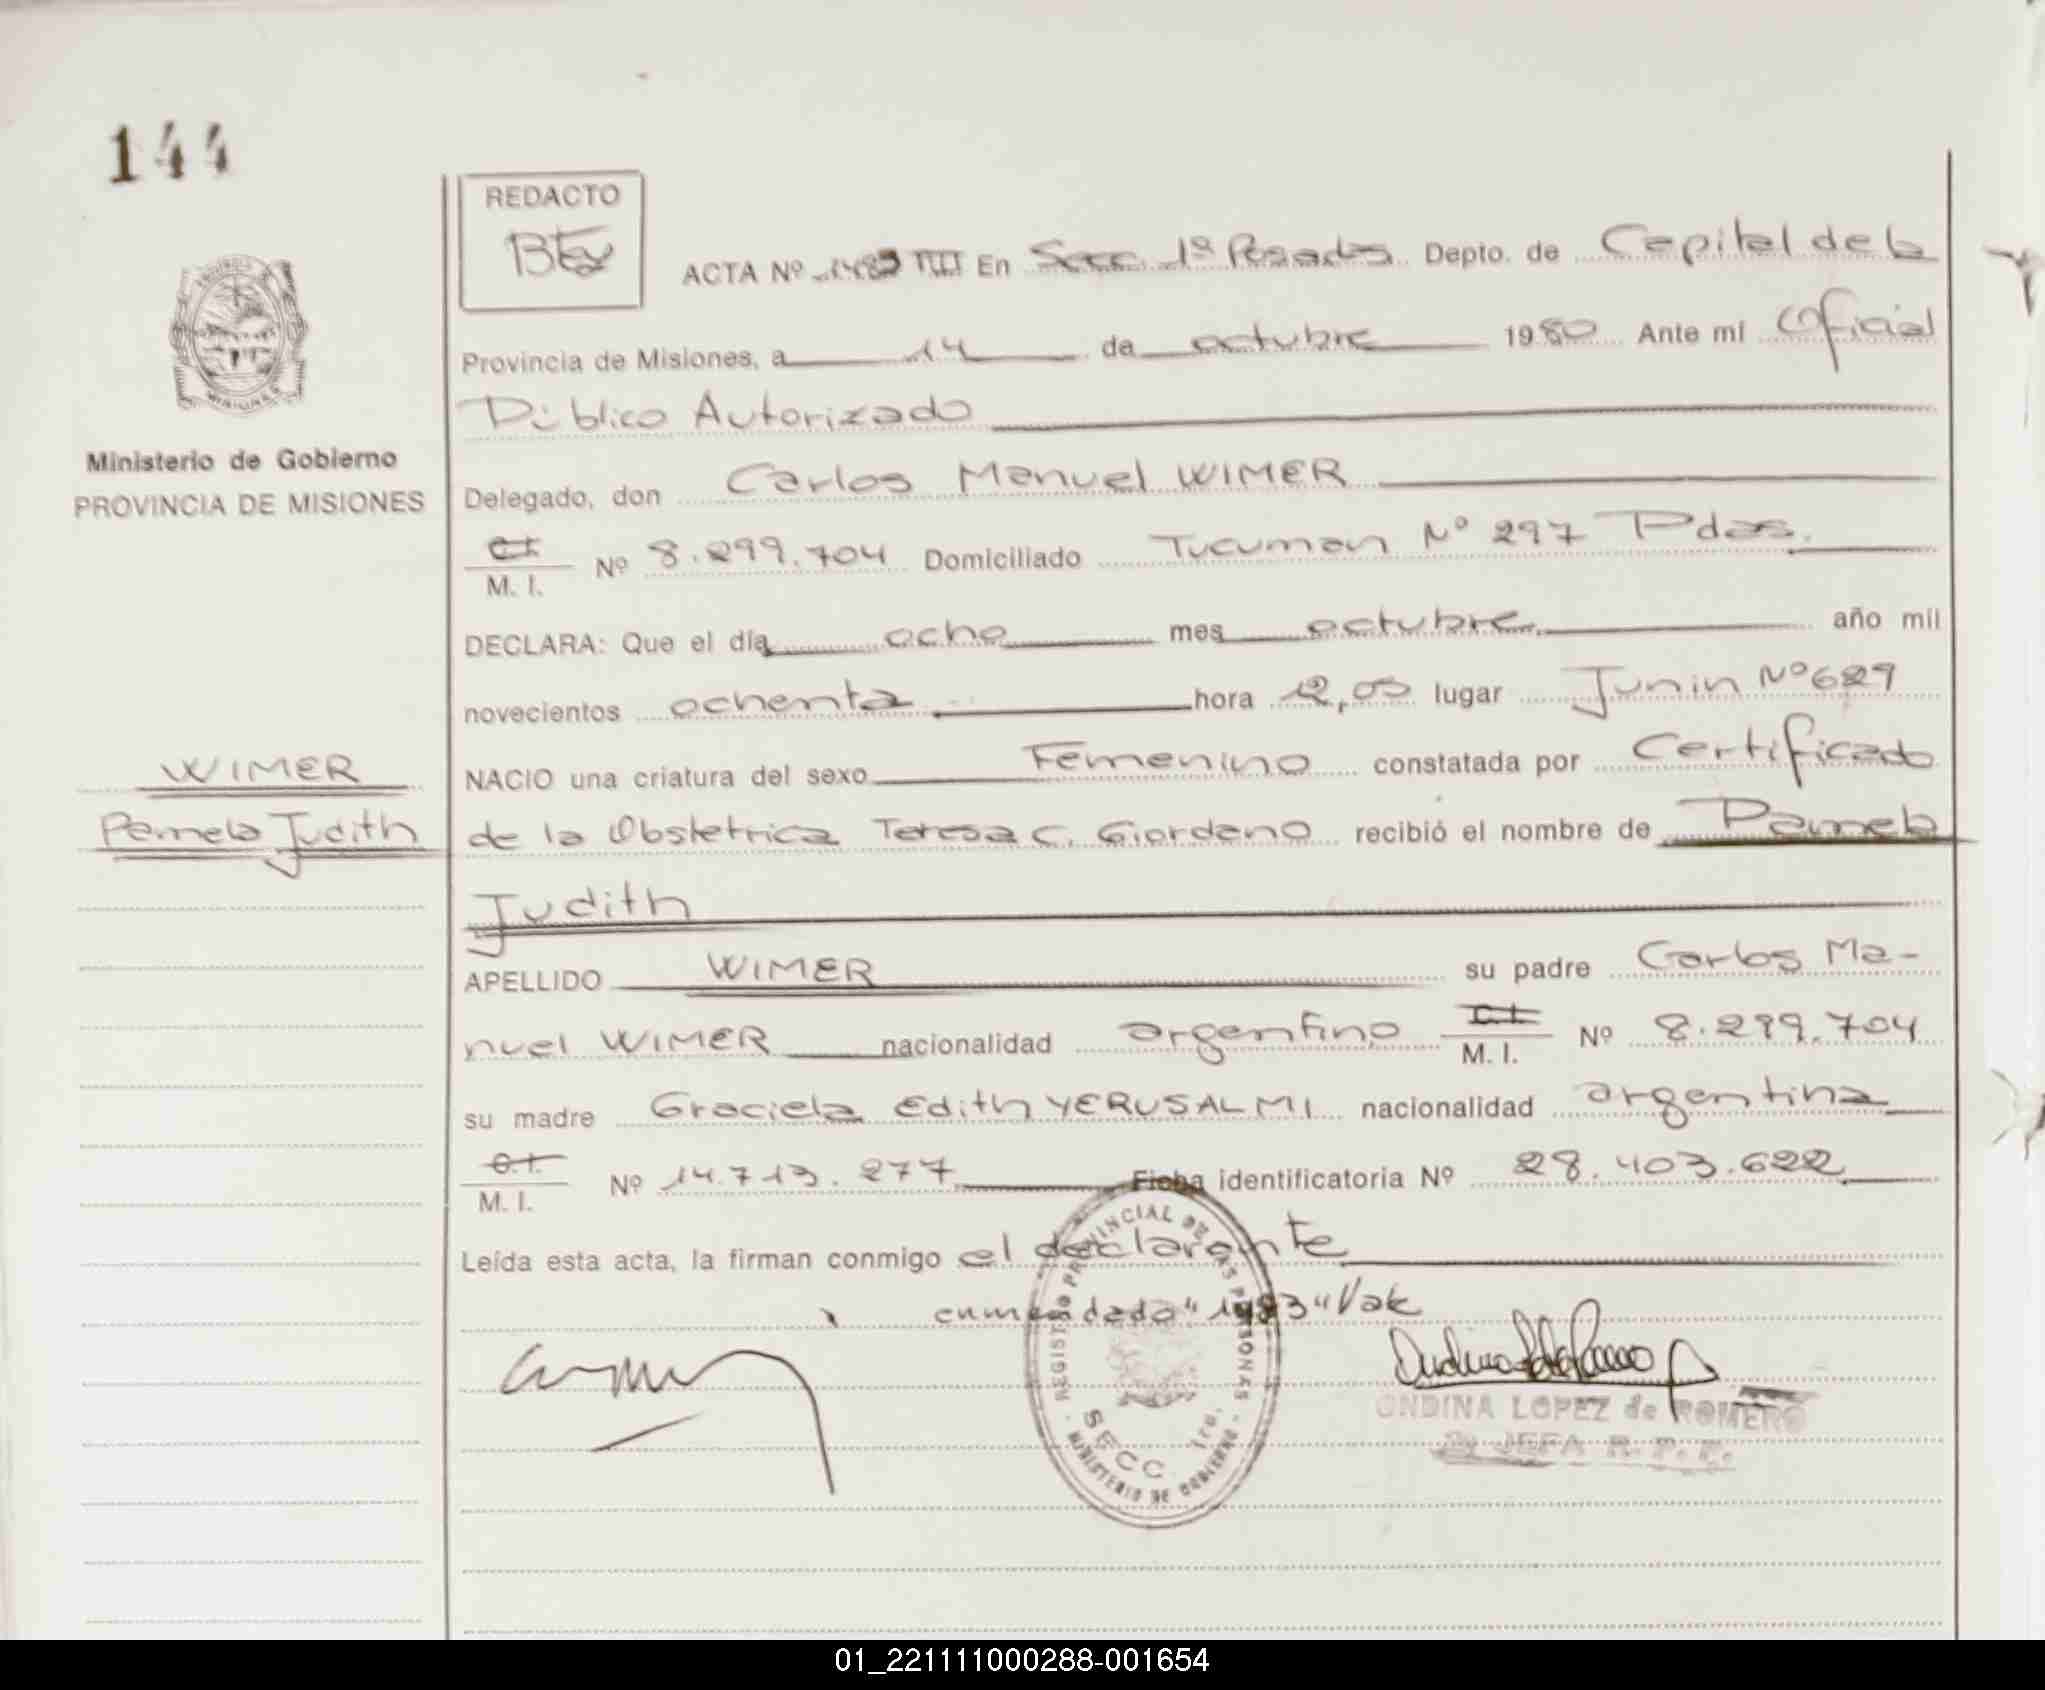 144
REDACTO
ACTA Nº 1483 III En Secc. 1ª Posadas Depto. de Capital de la
Provincia de Misiones, a 14 de octubre 1980 Ante mí Oficial
Público Autorizado
Ministerio de Gobierno
PROVINCIA DE MISIONES
Delegado, don Carlos Manuel WIMER
C.I.
M. I. Nº 8.299.704 Domiciliado Tucuman Nº 297 Pdas.
DECLARA: Que el día ocho mes octubre año mil
novecientos ochenta hora 12,05 lugar Junin Nº 629
WIMER
Pamela Judith
NACIO una criatura del sexo Femenino constatada por Certificado
de la Obstetrica Teresa C. Giordano recibió el nombre de Pamela
Judith
APELLIDO WIMER su padre Carlos Ma-
nuel WIMER nacionalidad argentino C.I. M. I. Nº 8.299.704
su madre Graciela Edith YERUSALMI nacionalidad argentina
C.I.
M. I. Nº 14.713.277 Ficha identificatoria Nº 28.403.622
Leída esta acta, la firman conmigo el declarante
enmendado "1483" Vale
REGISTRO PROVINCIAL DE LAS PERSONAS
SECC. 1ra.
MINISTERIO DE GOBIERNO
ONDINA LOPEZ de ROMERO
JEFA R. P. P.
01_221111000288-001654